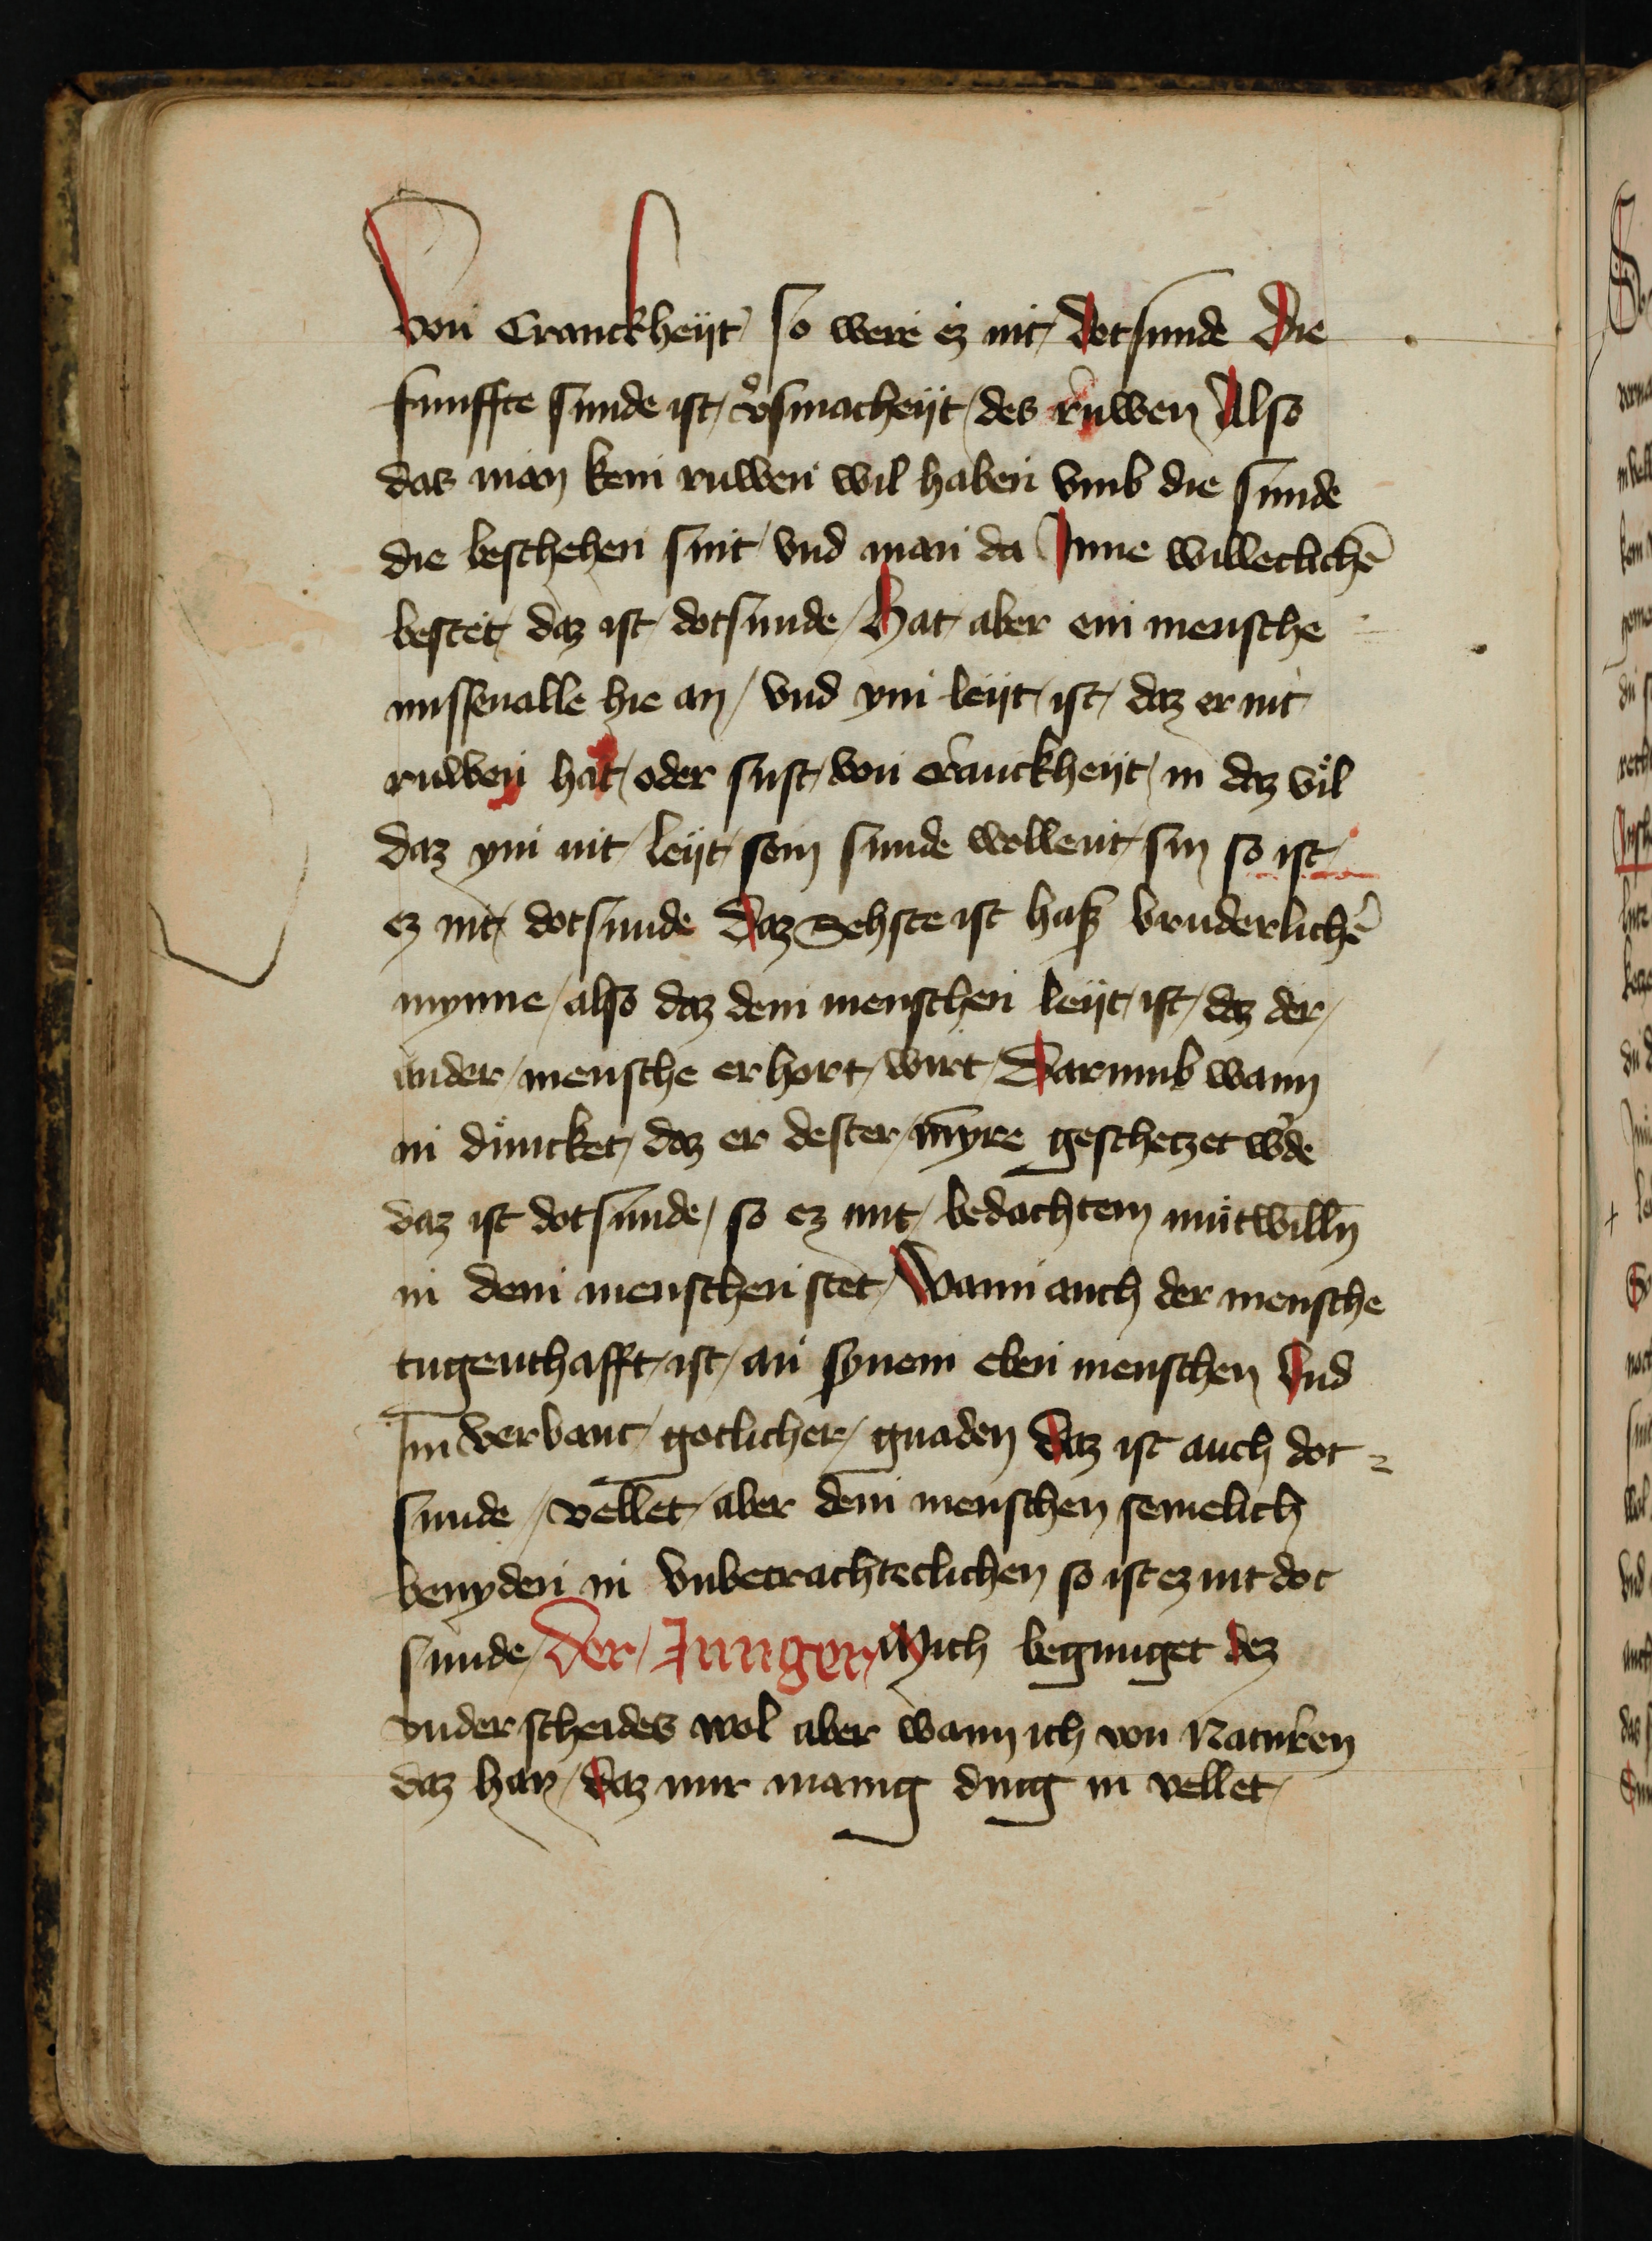 Von Cranckheÿt so were ez nit dotsunde Die
funffte sunde ist v̊smacheÿt des ruwen Also
das man kein ruwen wil haben vmb die sunde
die beschehen sint vnd man da Jnne willeclichē
bestet daz ist dotsunde Hat aber ein mensche
missevalle hie an vnd ym leÿt ist daz er nit
ruwen hat oder sust von cranckheÿt in daz vil
daz ym nit leÿt sein sunde wellent sin so ist
ez nit dotsunde Daz Sehste ist hasz bruderlichē
mynne also daz dem menschen leÿt ist daz der
ander mensche erhort wirt Darumb wann
in duncket daz er dester mynre geschetzet w̓de
daz ist dotsunde so ez mit bedachtem mutwilln̄
in dem menschen stet Wann auch der mensche
tugenthafft ist an synem eben menschen Vnd
im verbant gotlicher gnaden Daz ist auch dot
sunde vellet aber dem menschen semelich
benyden in vnbetrachteclichen so ist ez nit dot
sunde Der Junger Mich begnuget dez
vnderscheides wol aber wann ich von Naturen
daz han daz mir manig ding in vellet